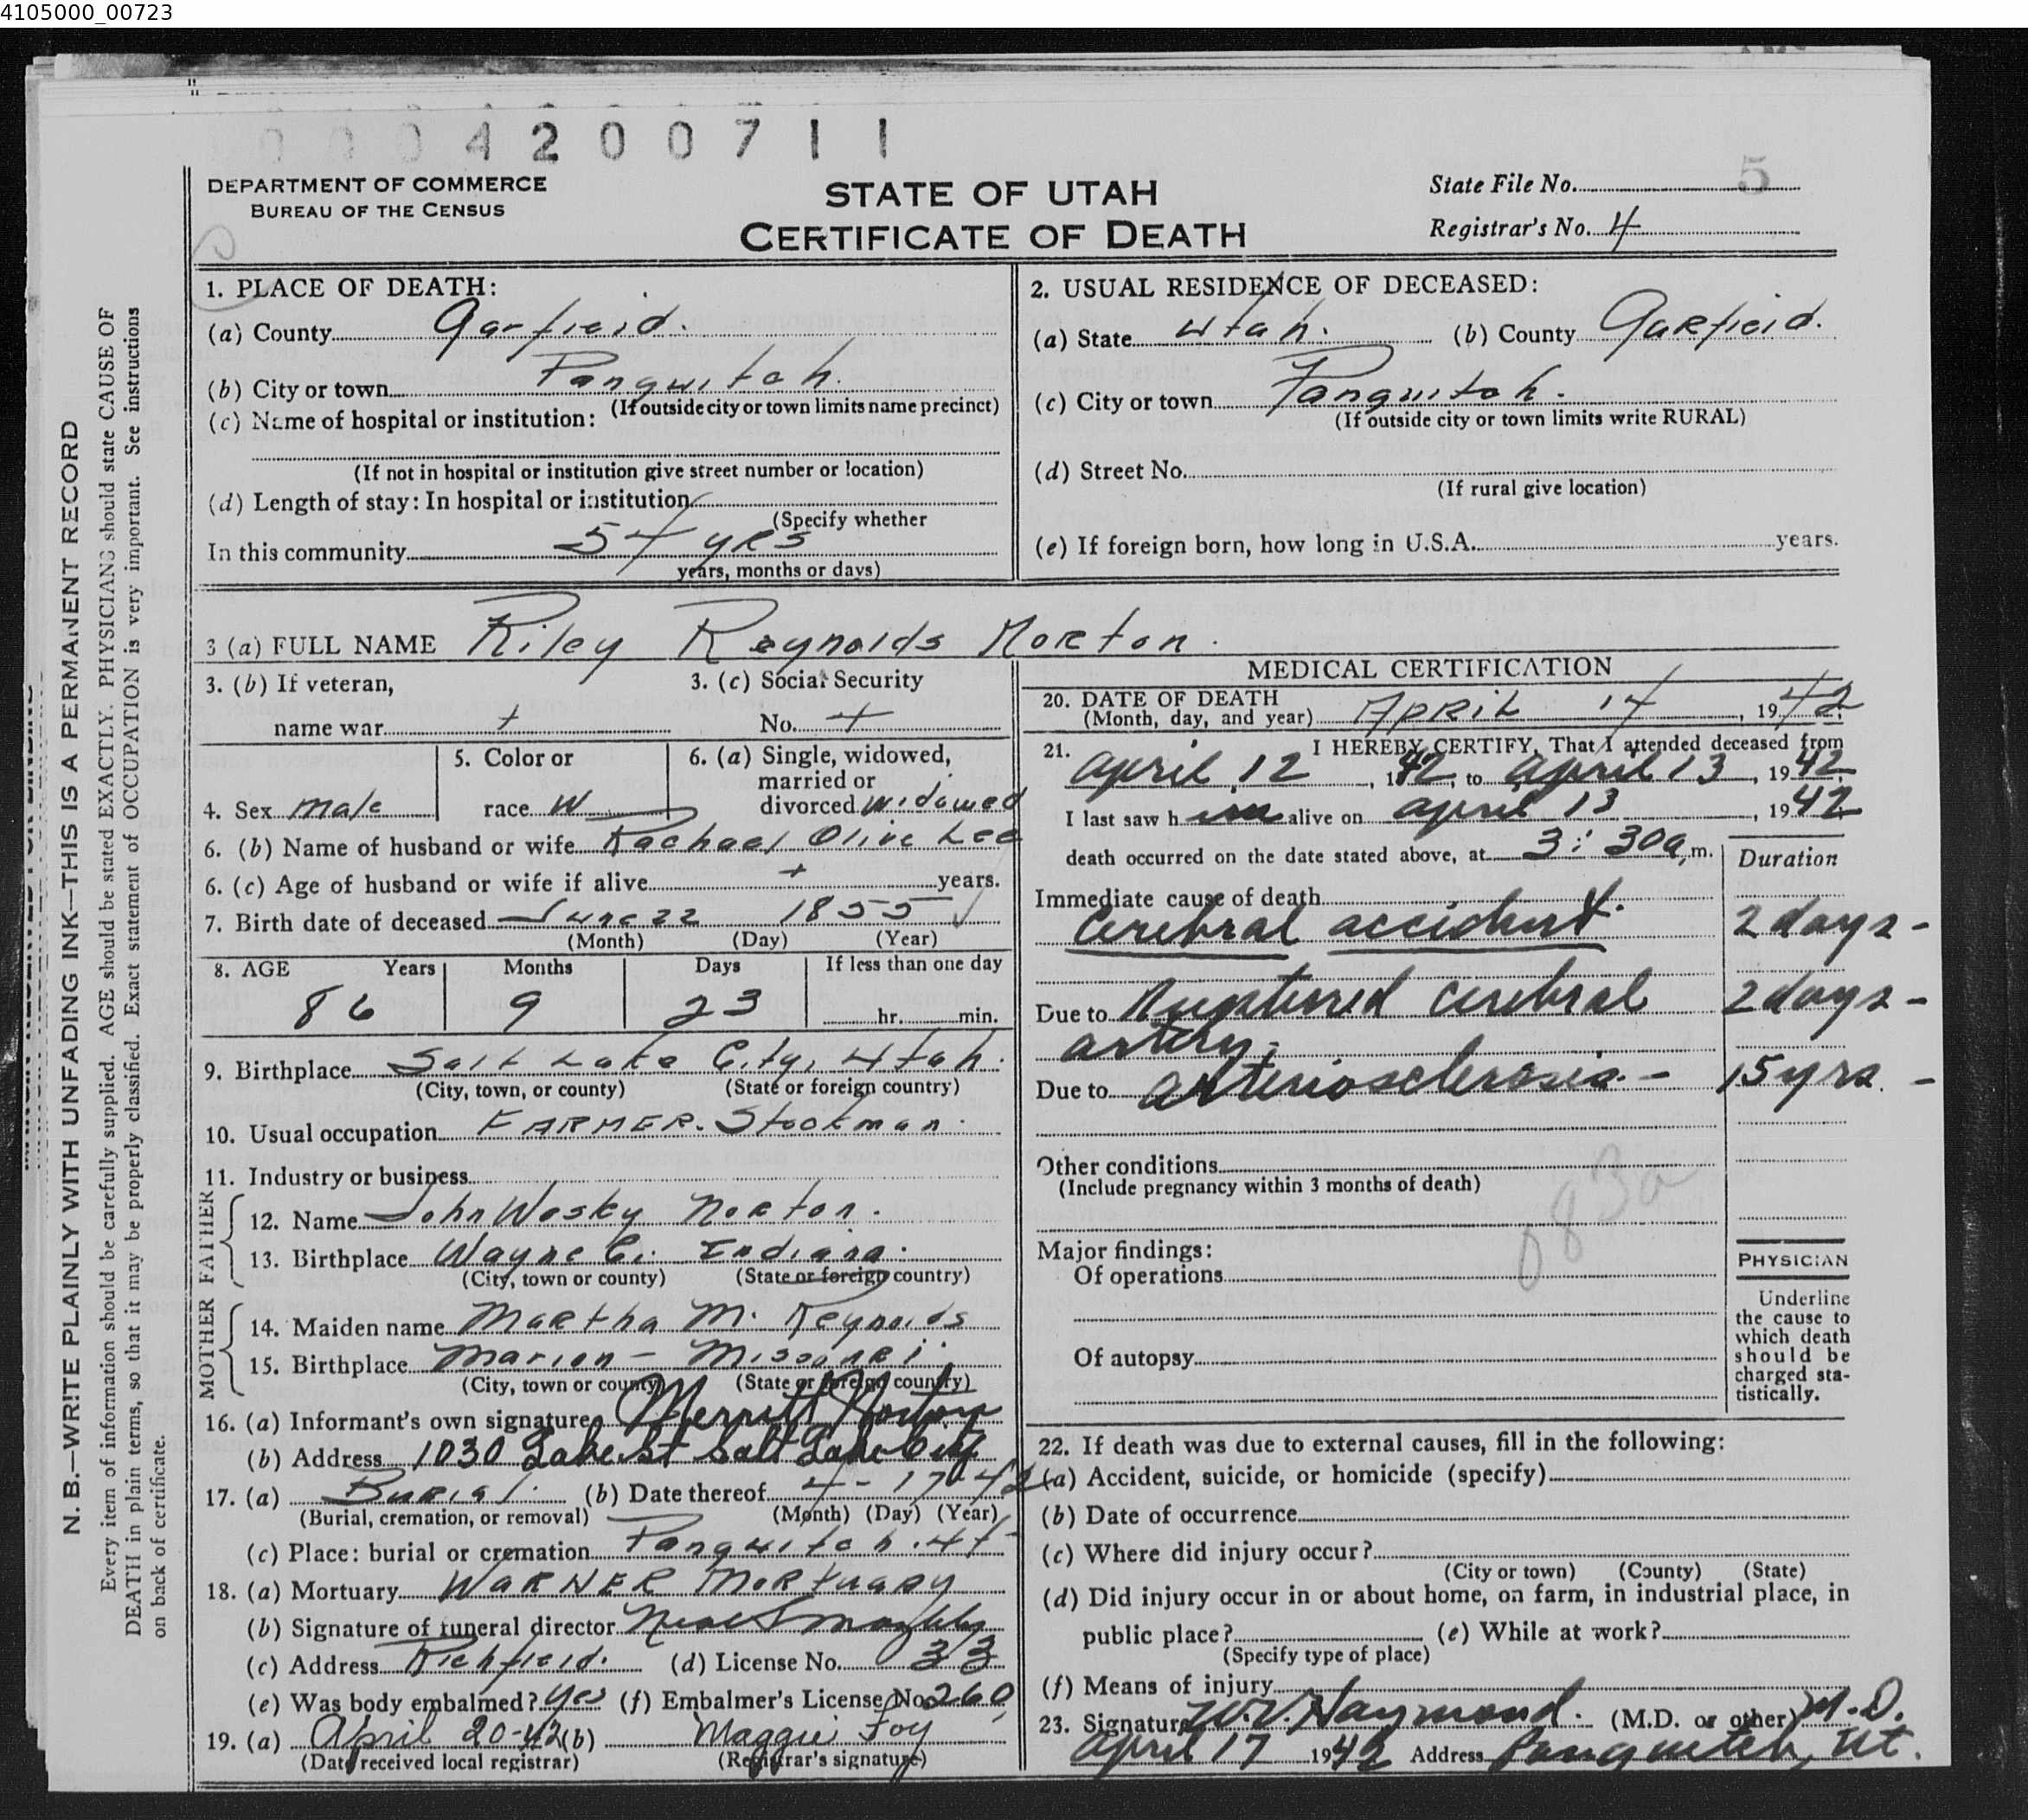 4105000_00723
0 0 0 4 2 0 0 7 1 1
DEPARTMENT OF COMMERCE
BUREAU OF THE CENSUS
STATE OF UTAH
CERTIFICATE OF DEATH
State File No. 5
Registrar's No. 4
N. B.—WRITE PLAINLY WITH UNFADING INK—THIS IS A PERMANENT RECORD
Every item of information should be carefully supplied. AGE should be stated EXACTLY. PHYSICIANS should state CAUSE OF
DEATH in plain terms, so that it may be properly classified. Exact statement of OCCUPATION is very important. See instructions
on back of certificate.
1. PLACE OF DEATH:
(a) County Garfield.
(b) City or town Panguitch.
(If outside city or town limits name precinct)
(c) Name of hospital or institution:
(If not in hospital or institution give street number or location)
(d) Length of stay: In hospital or institution
(Specify whether
In this community 54 yRs
years, months or days)
2. USUAL RESIDENCE OF DECEASED:
(a) State Utah. (b) County Garfield.
(c) City or town Panguitch.
(If outside city or town limits write RURAL)
(d) Street No.
(If rural give location)
(e) If foreign born, how long in U.S.A. years.
3 (a) FULL NAME Riley Reynolds Norton.
3. (b) If veteran, 3. (c) Social Security
name war + No. +
4. Sex male
5. Color or
race W
6. (a) Single, widowed,
married or
divorced widowed
6. (b) Name of husband or wife Rachael Olive Lee
6. (c) Age of husband or wife if alive + years.
7. Birth date of deceased June 22 1855
(Month) (Day) (Year)
8. AGE Years Months Days If less than one day
86 9 23 hr. min.
9. Birthplace Salt Lake City, Utah.
(City, town, or county) (State or foreign country)
10. Usual occupation FARMER. Stockman.
11. Industry or business
FATHER
12. Name John Wesky Norton.
13. Birthplace Wayne Co. Indiana.
(City, town or county) (State or foreign country)
MOTHER
14. Maiden name Martha M. Reynolds
15. Birthplace Marion — Missouri.
(City, town or county) (State or foreign country)
16. (a) Informant's own signature Merritt Norton
(b) Address 1030 Lake St Salt Lake City
17. (a) Burial. (b) Date thereof 4 - 17 - 42
(Burial, cremation, or removal) (Month) (Day) (Year)
(c) Place: burial or cremation Panguitch. Ut
18. (a) Mortuary WARNER MORTUARY
(b) Signature of funeral director
(c) Address Richfield. (d) License No. 33
(e) Was body embalmed? Yes (f) Embalmer's License No. 260
19. (a) April 20-42 (b) Maggie Foy
(Date received local registrar) (Registrar's signature)
MEDICAL CERTIFICATION
20. DATE OF DEATH
(Month, day, and year) APRIL 14, 1942
21. I HEREBY CERTIFY, That I attended deceased from
April 12, 1942, to April 13, 1942
I last saw h im alive on April 13, 1942
death occurred on the date stated above, at 3:30a, m.
Duration
Immediate cause of death
Cerebral accident. 2 days -
Due to Ruptured cerebral 2 days -
artery.
Due to arteriosclerosis. - 15 yrs. -
Other conditions
(Include pregnancy within 3 months of death)
083a
Major findings:
Of operations
Of autopsy
PHYSICIAN
Underline
the cause to
which death
should be
charged sta-
tistically.
22. If death was due to external causes, fill in the following:
(a) Accident, suicide, or homicide (specify)
(b) Date of occurrence
(c) Where did injury occur?
(City or town) (County) (State)
(d) Did injury occur in or about home, on farm, in industrial place, in
public place? (e) While at work?
(Specify type of place)
(f) Means of injury
23. Signature W. V. Haymond. (M.D. or other) M.D.
April 17 1942 Address Panguitch, Ut.